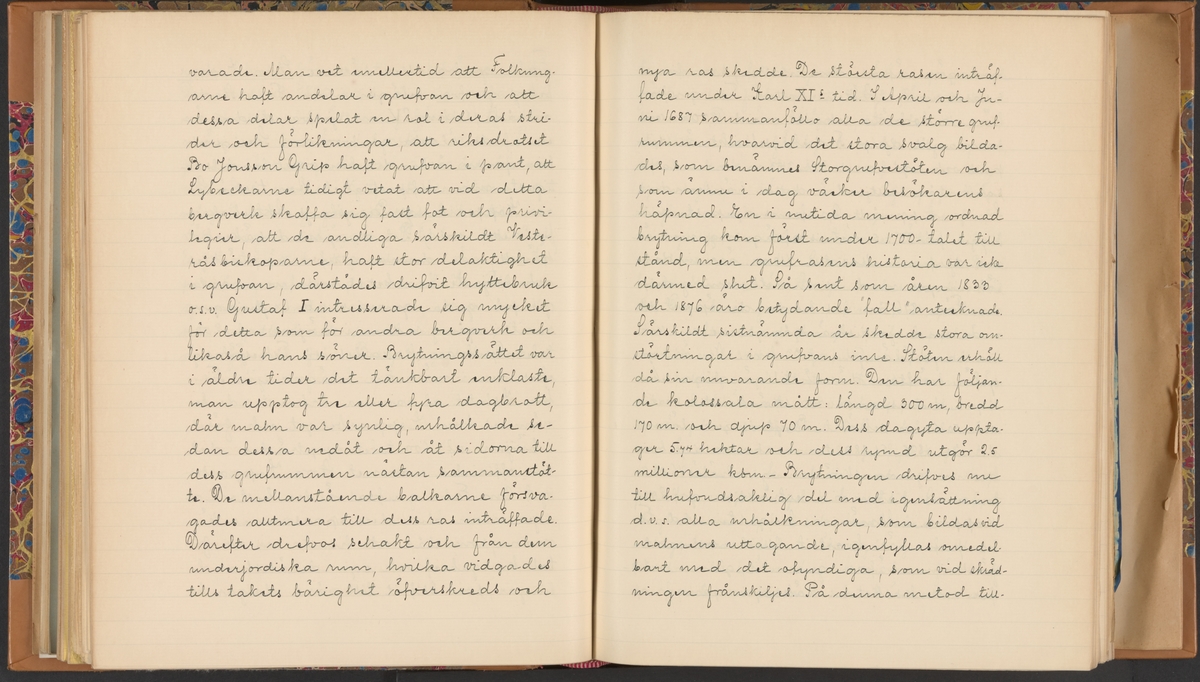 varade. Man vet emellertid att Folkung-
arne haft andelar i grufvan och att
dessa delar spelat en rol i deras stri-
der och förlikningar, att riksdrotset
Bo Jonsson Grip haft grufvan i pant, att
Lybeckarne tidigt vetat att vid detta
bergverk skaffa sig fast fot och privi-
legier, att de andliga särskildt Veste-
råsbiskoparne, haft stor delaktighet
i grufvan, därstädes drifvit hyttebruk
o.s.v. Gustaf I intresserade sig mycket
för detta som för andra bergverk och
likaså hans söner. Brytningssättet var
i äldre tider det tänkbart enklaste,
man upptog tre eller fyra dagbrott,
där malm var synlig, urhålkade se-
dan dessa nedåt och åt sidorna till
dess grufrummen nästan sammanstöt-
te. De mellanstående balkarne försva-
gades alltmera till dess ras inträffade.
Därefter drefvos schakt och från dem
underjordiska rum, hvilka vidgades
tills takets bärighet öfverskreds och
nya ras skedde. De största rasen inträf-
fade under Karl XIs tid. I April och Ju-
ni 1687 sammanföllo alla de större gruf-
rummen, hvarvid det stora svalg bilda-
des, som benämnes Storgrufvestöten och
som ännu i dag väcker besökarens
häpnad. En i nutida mening ordnad
brytning kom först under 1700-talet till
stånd, men grufrasens historia var icke
därmed slut. Så sent som åren 1833
och 1876 äro betydande "fall" antecknade.
Särskildt sistnämnda år skedde stora om-
störtningar i grufvans inre. Stöten erhöll
då sin nuvarande form. Den har följan-
de kolossala mått: längd 300 m, bredd
170 m. och djup 70 m. Dess dagyta uppta-
ger 5.74 hektar och dess rymd utgör 2.5
millioner kbm.- Brytningen drifves nu
till hufvudsaklig del med igensättning
d.v.s. alla urhålkningar, som bildas vid
malmens uttagande, igenfyllas omedel-
bart med det ofyndiga, som vid skräd-
ningen frånskiljes. På denna metod till-